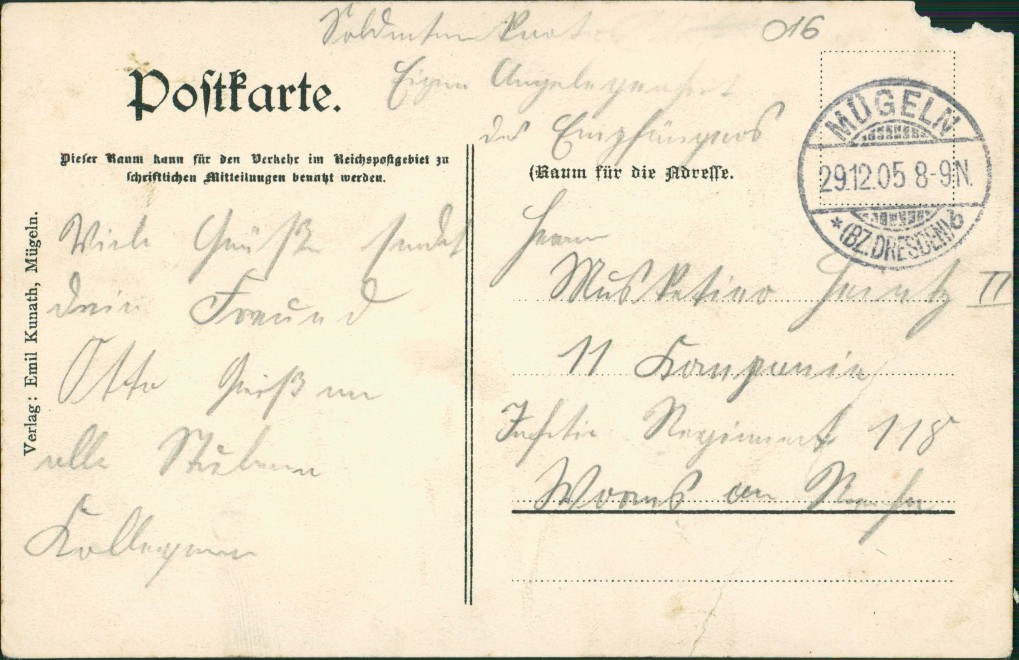 Soldaten
016
Eigene Angelegenheit
des Empfängers
Postkarte.
Dieser Raum kann für den Verkehr im Reichspostgebiet zu
schriftlichen Mitteilungen benutzt werden.
(Raum für die Adresse.
MÜGELN
29.12.05 8-9N.
* (BZ. DRESDEN) b
Verlag: Emil Kunath, Mügeln.
Viele Grüße sendet
dein Freund
Otto Gruß an
alle Stuben
Kollegen
Herrn
Musketier Heintz II
11 Kompanie
Regiment 118
Worms am Rhein